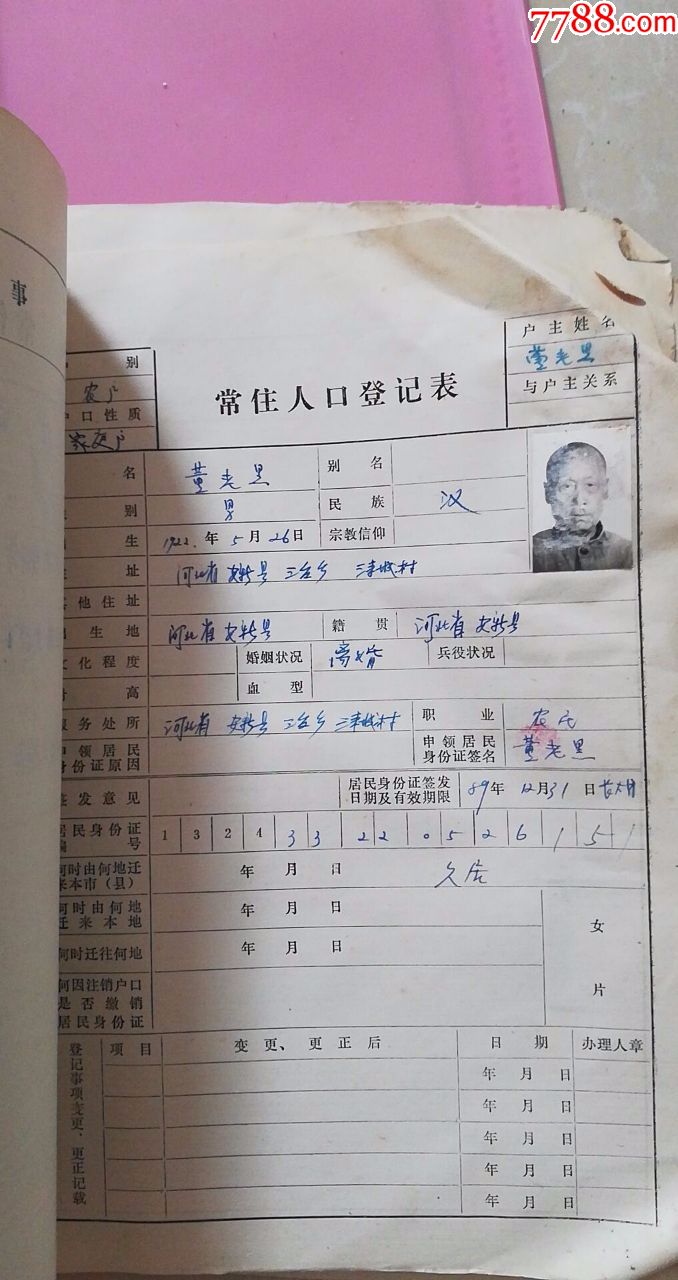 7788.com
事
户主姓名
董老黑
与户主关系
别
农户
户口性质
家庭户
常住人口登记表
名 董老黑 别名
别 男 民族 汉
生 1922年5月26日 宗教信仰
址 河北省安新县三台乡
其他住址
出生地 河北省安新县 籍贯 河北省安新县
文化程度 婚姻状况 离婚 兵役状况
身高 血型
服务处所 河北省 安新县 三台乡 职业 农民
申领居民身份证原因 申领居民身份证签名 董老黑
签发意见 居民身份证签发日期及有效期限 89年12月31日长期
居民身份证编号 1 3 2 4 3 3 2 2 0 5 2 6 1 5 1
何时由何地迁来本市（县） 年 月 日 久居
何时由何地迁来本地 年 月 日
何时迁往何地 年 月 日
何因注销户口是否缴销居民身份证
女
片
登记事项变更、更正记载
项目 变更、更正后 日期 办理人章
年 月 日
年 月 日
年 月 日
年 月 日
年 月 日